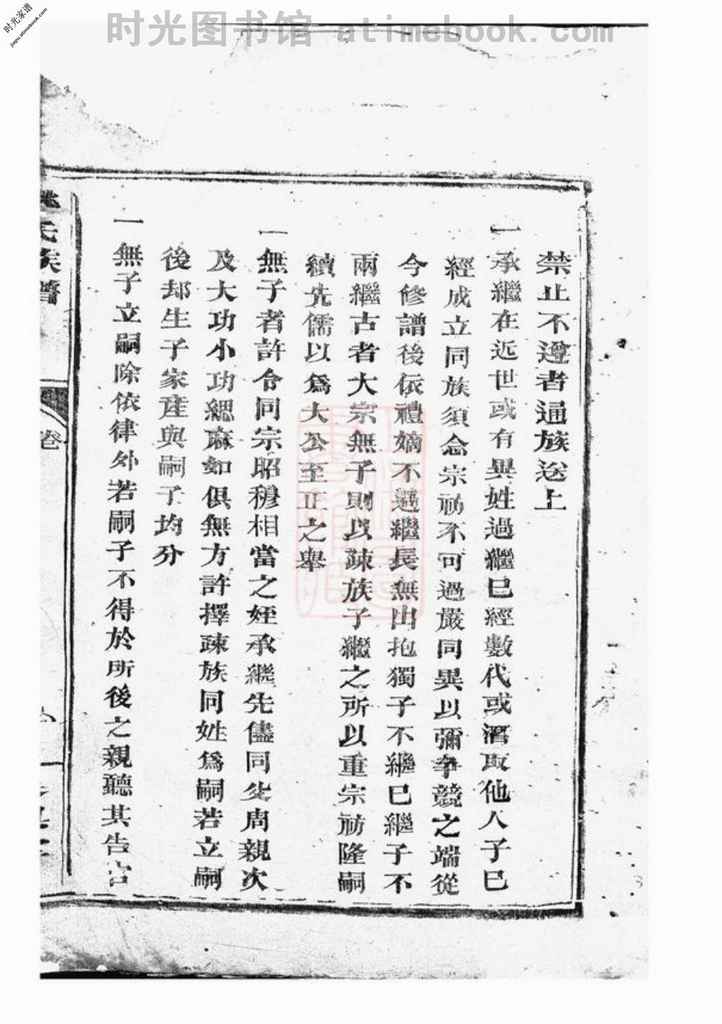 时光图书馆 atimebook.com
时光家谱
jiapu.atimebook.com
禁止不遵者通族送上
一承繼在近世或有異姓過繼已經數代或濳取他人子已
經成立同族須念宗祊不可過嚴同異以彌争競之端從
今修譜後依禮嫡不過繼長無出抱獨子不繼已繼子不
兩繼古者大宗無子則以疎族子繼之所以重宗祊隆嗣
續先儒以爲大公至正之舉
一無子者許令同宗昭穆相當之姪承繼先儘同父周親次
及大功小功緦麻如俱無方許擇疎族同姓爲嗣若立嗣
後却生子家產與嗣子均分
一無子立嗣除依律外若嗣子不得於所後之親聽其告官
氏族譜
卷